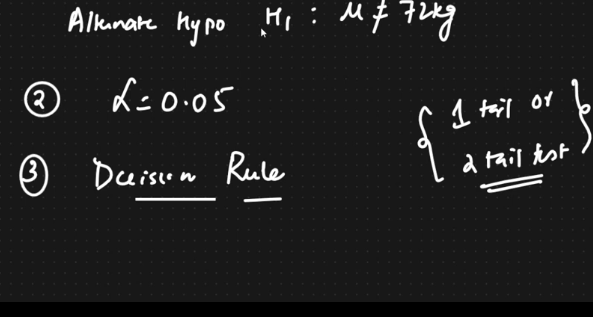 Alternate Hypo H₁ : μ ≠ 72kg
② α = 0.05
③ Decision Rule
{ 1 tail or
2 tail test }